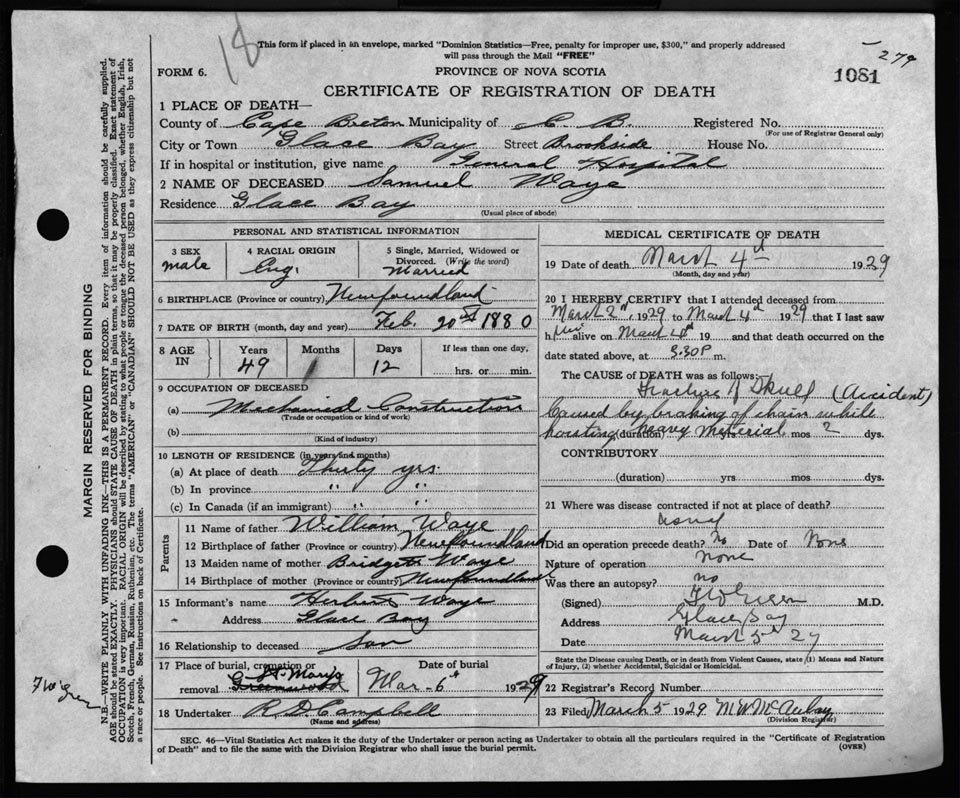 18
This form if placed in an envelope, marked "Dominion Statistics—Free, penalty for improper use, $300," and properly addressed
will pass through the Mail "FREE"
279
FORM 6.
PROVINCE OF NOVA SCOTIA
1081
CERTIFICATE OF REGISTRATION OF DEATH
1 PLACE OF DEATH—
County of Cape Breton Municipality of C. B. Registered No.
(For use of Registrar General only)
City or Town Glace Bay Street Brookside House No.
If in hospital or institution, give name General Hospital
2 NAME OF DECEASED Samuel Waye
Residence Glace Bay
(Usual place of abode)
PERSONAL AND STATISTICAL INFORMATION
3 SEX
male
4 RACIAL ORIGIN
Eng.
5 Single, Married, Widowed or
Divorced. (Write the word)
Married
6 BIRTHPLACE (Province or country) Newfoundland
7 DATE OF BIRTH (month, day and year) Feb. 20st 1880
8 AGE
IN
Years
49
Months
Days
12
If less than one day,
hrs. or min.
9 OCCUPATION OF DECEASED
(a) Mechanical Construction
(Trade or occupation or kind of work)
(b)
(Kind of industry)
10 LENGTH OF RESIDENCE (in years and months)
(a) At place of death Thirty yrs.
(b) In province " "
(c) In Canada (if an immigrant) " "
Parents
11 Name of father William Waye
12 Birthplace of father (Province or country) Newfoundland
13 Maiden name of mother Bridget Waye
14 Birthplace of mother (Province or country) Newfoundland
15 Informant's name Herbert Waye
" Address Glace Bay
16 Relationship to deceased Son
17 Place of burial, cremation or
removal
St. Marys
Greenwood
Date of burial
Mar - 6th 1929
18 Undertaker R. D. Campbell
(Name and address)
MEDICAL CERTIFICATE OF DEATH
19 Date of death March 4th 1929
(Month, day and year)
20 I HEREBY CERTIFY that I attended deceased from
March 2nd 1929 to March 4th 1929 that I last saw
him alive on March 4th 19 and that death occurred on the
date stated above, at 3.30 P m.
The CAUSE OF DEATH was as follows:—
Fracture of Skull (Accident)
Caused by braking of chain while
hoisting heavy material
(duration) yrs mos 2 dys.
CONTRIBUTORY
(duration) yrs mos dys.
21 Where was disease contracted if not at place of death?
Did an operation precede death? No Date of None
Nature of operation None
Was there an autopsy? no
(Signed) M.D.
Address Glace Bay
Date March 5th 29
State the Disease causing Death, or in death from Violent Causes, state (1) Means and Nature
of Injury, (2) whether Accidental, Suicidal or Homicidal.
22 Registrar's Record Number
23 Filed March 5 1929 M W McAulay
(Division Registrar)
SEC. 46—Vital Statistics Act makes it the duty of the Undertaker or person acting as Undertaker to obtain all the particulars required in the "Certificate of Registration
of Death" and to file the same with the Division Registrar who shall issue the burial permit.
(OVER)
MARGIN RESERVED FOR BINDING
N.B.—WRITE PLAINLY WITH UNFADING INK—THIS IS A PERMANENT RECORD. Every item of information should be carefully supplied.
AGE should be stated EXACTLY. PHYSICIANS should STATE CAUSE OF DEATH in plain terms, so that it may be properly classified. Exact statement of
OCCUPATION is very important. RACIAL ORIGIN will be described by stating to what people or tongue the deceased person belonged, whether English, Irish,
Scotch, French, German, Russian, Ruthenian, etc. The terms "AMERICAN" or "CANADIAN" SHOULD NOT BE USED as they express citizenship but not
a race or people. See instructions on back of Certificate.